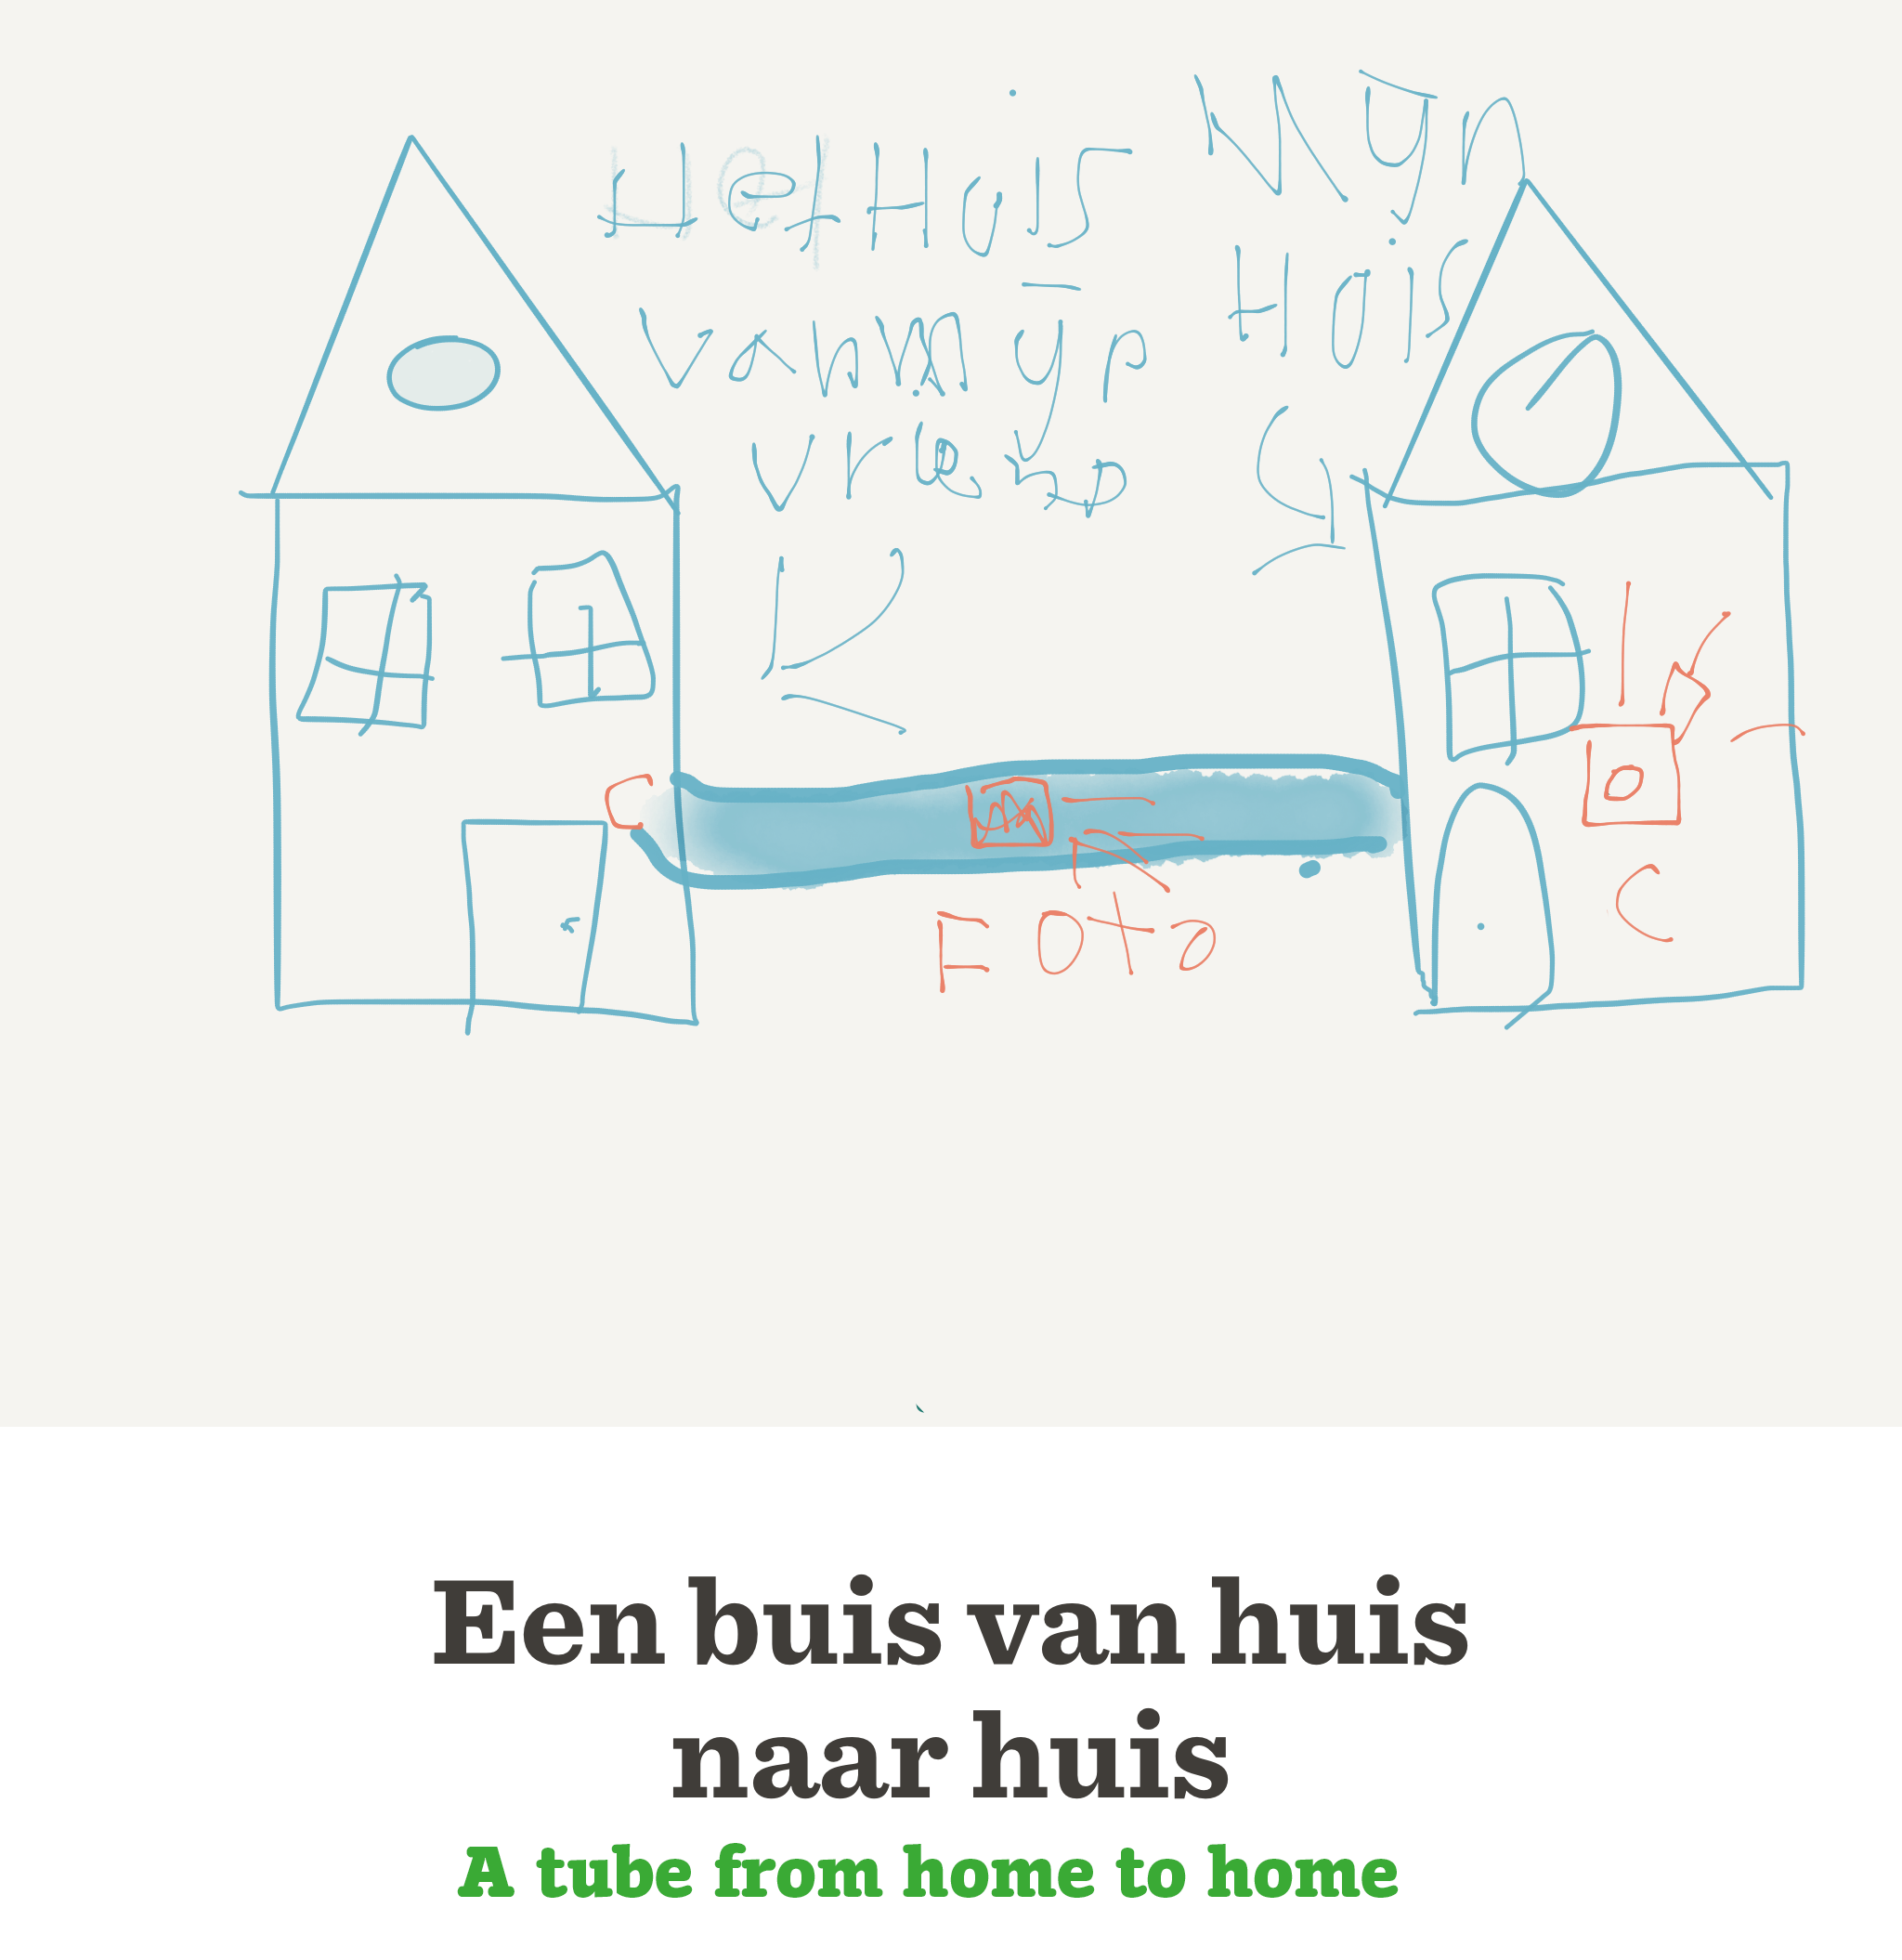 Het Huis
van myn
vrend
Myn
Huis
Foto
Een buis van huis
naar huis
A tube from home to home